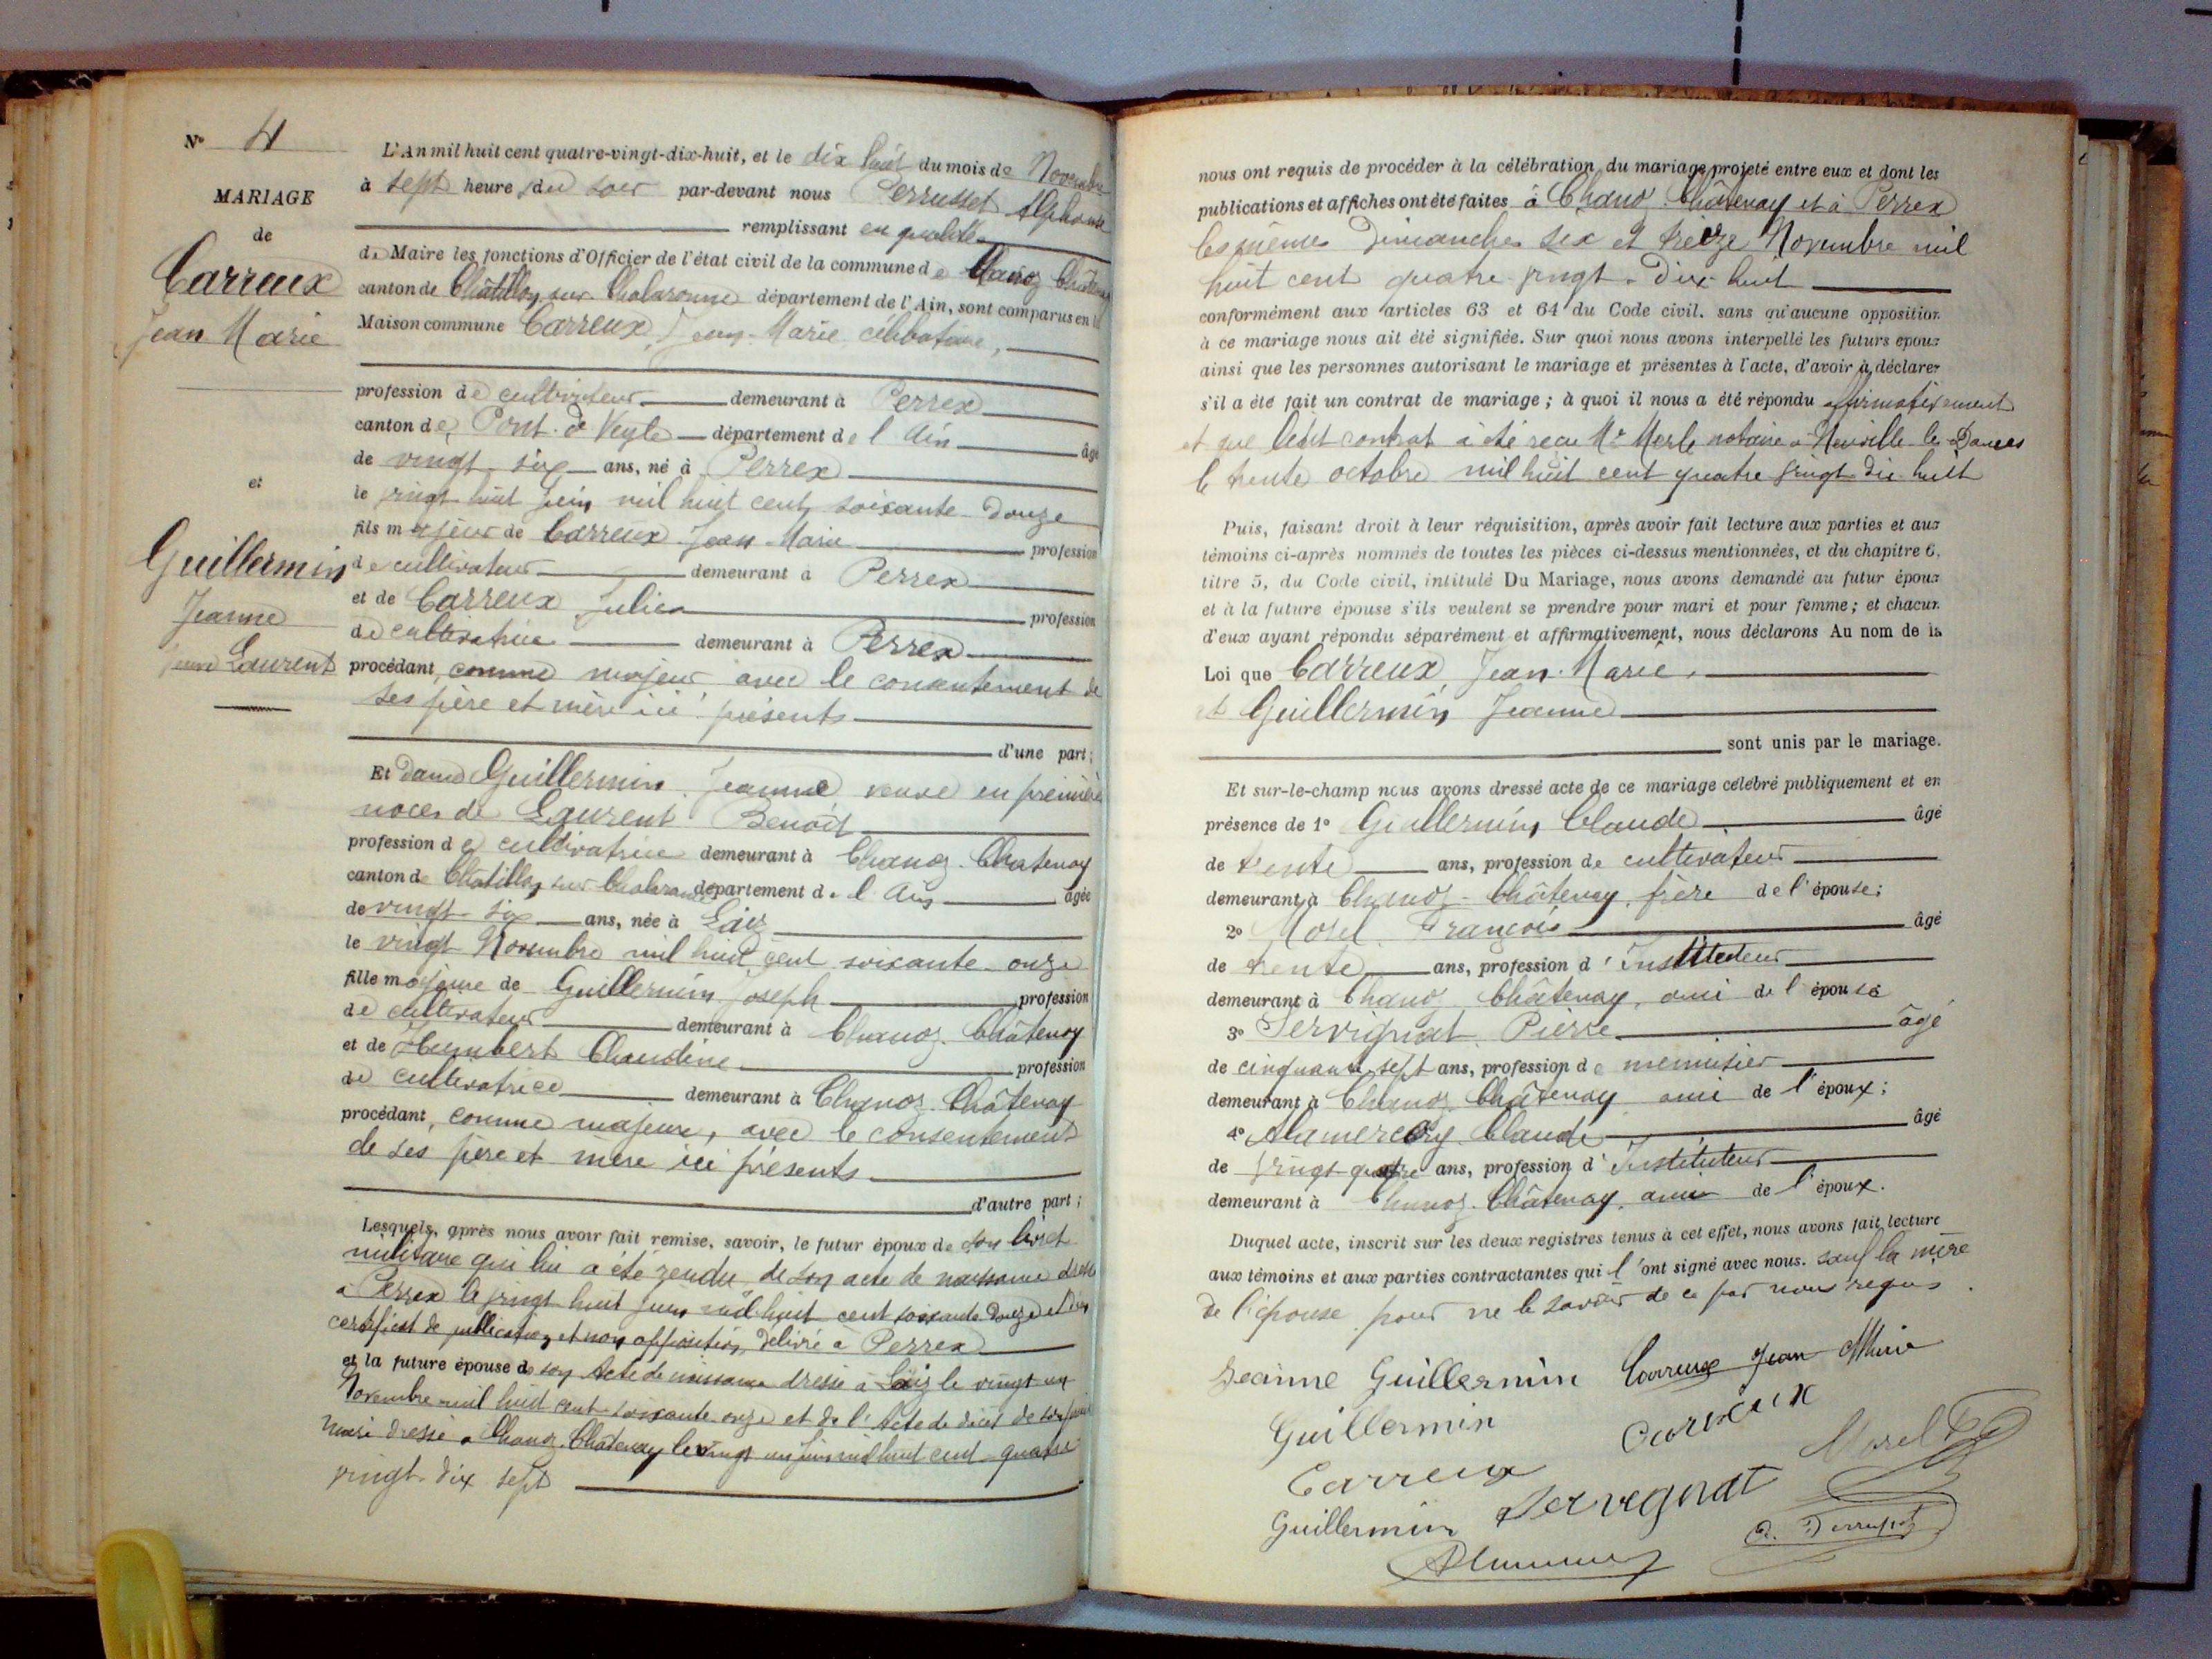 N° 4
MARIAGE
de
Carreux
Jean Marie
et
Guillermin
Jeanne
Laurent
L'An mil huit cent quatre-vingt-dix-huit, et le dix huit du mois de Novembre
à sept heure du soir par-devant nous Perrusset Alphonse
remplissant en qualité
de Maire les fonctions d'Officier de l'état civil de la commune de Chanoz Châtenay
canton de Châtillon sur Chalaronne département de l'Ain, sont comparus en la
Maison commune Carreux, Jean-Marie, célibataire,
profession de cultivateur demeurant à Perrex
canton de Pont de Veyle département de l'Ain âgé
de vingt-six ans, né à Perrex
le vingt huit Juin mil huit cent soixante douze
fils majeur de Carreux Jean Marie profession
de cultivateur demeurant à Perrex
et de Carreux Julie profession
de cultivatrice demeurant à Perrex
procédant, comme majeur avec le consentement de
ses père et mère ici présents
d'une part;
Et dame Guillermin Jeanne veuve en premières
noces de Laurent Benoît
profession de cultivatrice demeurant à Chanoz-Chatenay
canton de Châtillon sur Chalaronne département de l'Ain âgée
de vingt-six ans, née à Laiz
le vingt Novembre mil huit cent soixante-onze
fille majeure de Guillermin Joseph profession
de cultivateur demeurant à Chanoz-Châtenay
et de Humbert Claudine profession
de cultivatrice demeurant à Chanoz Châtenay
procédant, comme majeure, avec le consentement
de ses père et mère ici présents
d'autre part;
Lesquels, après nous avoir fait remise, savoir, le futur époux de son livret
militaire qui lui a été rendu, de son acte de naissance dressé
à Perrex le vingt huit Juin mil huit cent soixante douze et d'un
certificat de publication et non opposition délivré à Perrex
et la future épouse de son Acte de naissance dressé à Laiz le vingt un
Novembre mil huit cent soixante onze et de l'Acte de décès de son
mari dressé à Chanoz Châtenay le vingt un Juin mil huit cent quatre
vingt-dix sept
nous ont requis de procéder à la célébration du mariage projeté entre eux et dont les
publications et affiches ont été faites à Chanoz Châtenay et à Perrex
les mêmes Dimanches six et treize Novembre mil
huit cent quatre vingt-dix-huit
conformément aux articles 63 et 64 du Code civil. sans qu'aucune opposition
à ce mariage nous ait été signifiée. Sur quoi nous avons interpellé les futurs époux
ainsi que les personnes autorisant le mariage et présentes à l'acte, d'avoir à déclarer
s'il a été fait un contrat de mariage; à quoi il nous a été répondu affirmativement
et que ledit contrat a été reçu Me Merle notaire à Neuville les Dames
le trente octobre mil huit cent quatre vingt-dix huit
Puis, faisant droit à leur réquisition, après avoir fait lecture aux parties et aux
témoins ci-après nommés de toutes les pièces ci-dessus mentionnées, et du chapitre 6,
titre 5, du Code civil, intitulé Du Mariage, nous avons demandé au futur époux
et à la future épouse s'ils veulent se prendre pour mari et pour femme; et chacun
d'eux ayant répondu séparément et affirmativement, nous déclarons Au nom de la
Loi que Carreux, Jean-Marie,
et Guillermin Jeanne
sont unis par le mariage.
Et sur-le-champ nous avons dressé acte de ce mariage célébré publiquement et en
présence de 1° Guillermin Claude âgé
de trente ans, profession de cultivateur
demeurant à Chanoz-Châtenay, frère de l'épouse;
2° Morel François âgé
de trente ans, profession d'Instituteur
demeurant à Chanoz Châtenay, ami de l'épouse
3° Servignat Pierre âgé
de cinquante sept ans, profession de menuisier
demeurant à Chanoz Châtenay ami de l'époux;
4° Alamercery Claude âgé
de vingt-quatre ans, profession d'Instituteur
demeurant à Chanoz-Châtenay, ami de l'époux.
Duquel acte, inscrit sur les deux registres tenus à cet effet, nous avons fait lecture
aux témoins et aux parties contractantes qui l'ont signé avec nous. sauf la mère
de l'épouse pour ne le savoir de ce par nous requis.
Jeanne Guillermin Carreux Jean Marie
Guillermin Carreux
Morel
Carreux
Servignat
Guillermin
A. Perrusset